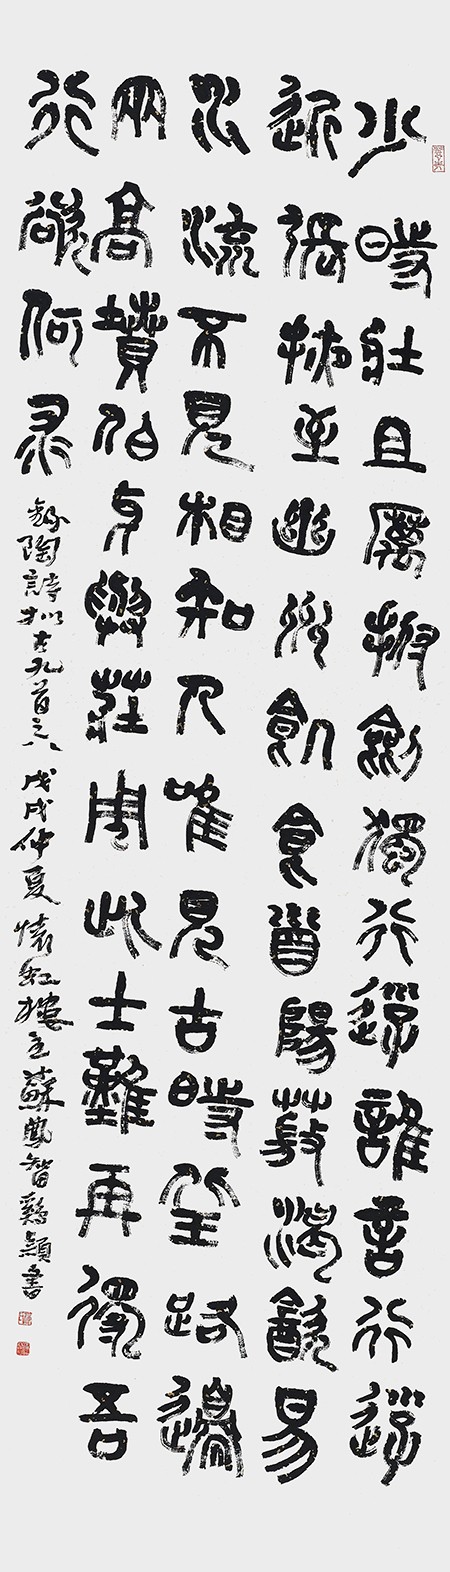 少時壯且厲撫劍獨行遊誰言行遊
近張掖至幽州飢食首陽薇渴飲易
水流不見相知人唯見古時丘路邊
兩高墳伯牙與莊周此士難再得吾
行欲何求
錄陶詩拟古九首之八 戊戌仲夏懷虹樓主蘇鳳智鷄穎書